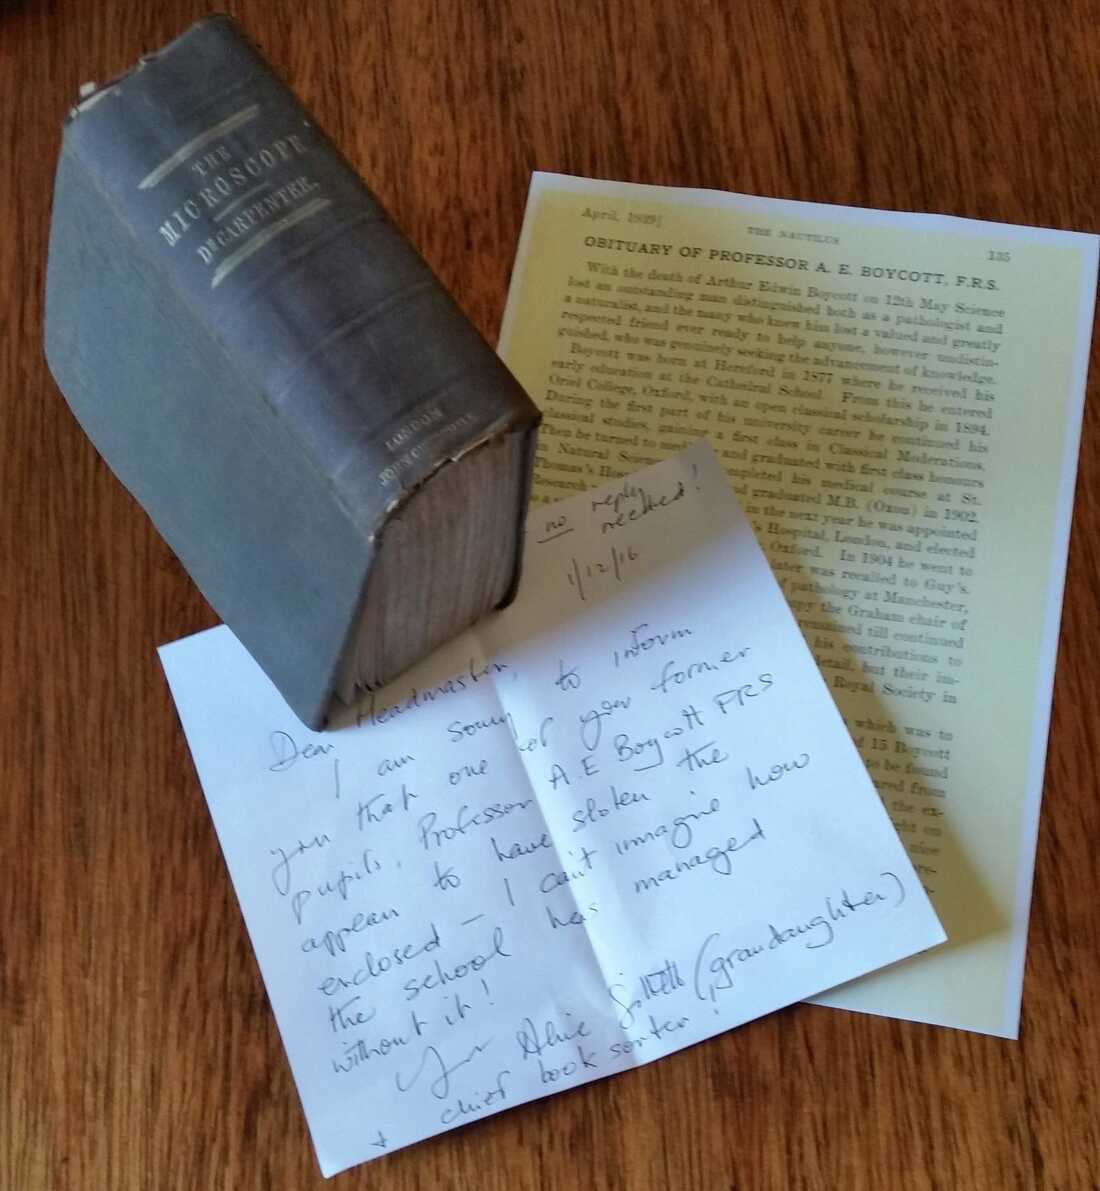 THE
MICROSCOPE
DR CARPENTER.
LONDON
JOHN
April, 1939]
THE NAUTILUS
135
OBITUARY OF PROFESSOR A. E. BOYCOTT, F.R.S.
With the death of Arthur Edwin Boycott on 12th May Science
lost an outstanding man distinguished both as a pathologist and
a naturalist, and the many who knew him lost a valued and greatly
respected friend ever ready to help anyone, however undistin-
guished, who was genuinely seeking the advancement of knowledge.
Boycott was born at Hereford in 1877 where he received his
early education at the Cathedral School. From this he entered
Oriel College, Oxford, with an open classical scholarship in 1894.
During the first part of his university career he continued his
classical studies, gaining a first class in Classical Moderations.
Then he turned to and graduated with first class honours
in Natural completed his medical course at St.
Thomas's graduated M.B. (Oxon) in 1902.
Research in the next year he was appointed
Hospital, London, and elected
Oxford. In 1904 he went to
later was recalled to Guy's.
pathology at Manchester,
the Graham chair of
remained till continued
his contributions to
detail, but their im-
Royal Society in
which was to
15 Boycott
to be found
from
the ex-
on
nice
no reply
needed!
1/12/16
Dear Headmaster,
I am sorry to inform
you that one of your former
pupils, Professor A.E Boycott FRS
appears to have stolen the
enclosed – I can't imagine how
the school has managed
without it!
Alice (grandaughter)
+ chief book sorter!